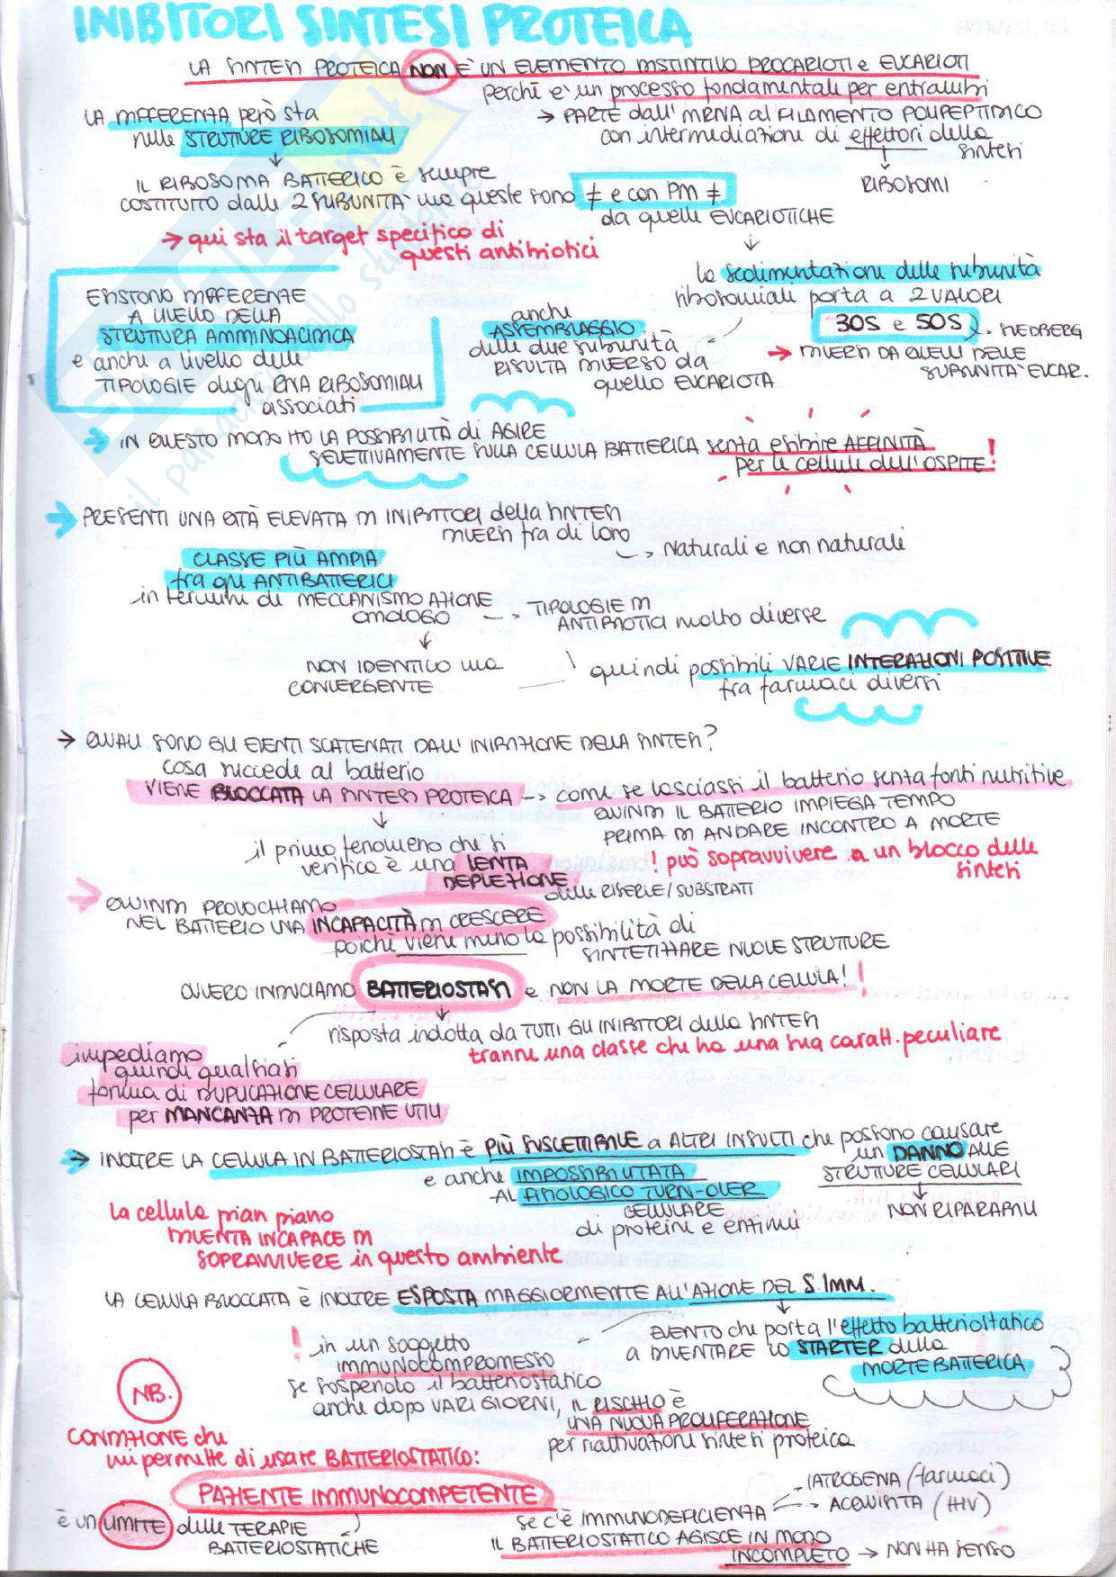 INIBITORI SINTESI PROTEICA
LA SINTESI PROTEICA NON È UN ELEMENTO DISTINTIVO PROCARIOTI e EUCARIOTI
perchè è un processo fondamentale per entrambi
LA DIFFERENZA però sta
nelle STRUTTURE RIBOSOMIALI
→ PARTE dall' MRNA al FILAMENTO POLIPEPTIDICO
con intermediazione di effettori della
sintesi
↓
RIBOSOMI
↓
IL RIBOSOMA BATTERICO è sempre
COSTITUITO dalle 2 SUBUNITÀ ma queste sono ≠ e con PM ≠
da quelle EUCARIOTICHE
→ qui sta il target specifico di
questi antibiotici
↓
la sedimentazione delle subunità
ribosomiali porta a 2 VALORI
30S e 50S
→ DIVERSI DA QUELLI DELLE
SUBUNITÀ EUCAR.
ESISTONO DIFFERENZE
A LIVELLO DELLA
STRUTTURA AMMINOACIDICA
e anche a livello delle
TIPOLOGIE degli RNA RIBOSOMIALI
associati
anche
ASSEMBLAGGIO
delle due subunità
RISULTA DIVERSO da
quello EUCARIOTA
→ IN QUESTO MODO HO LA POSSIBILITÀ di AGIRE
SELETTIVAMENTE SULLA CELLULA BATTERICA senza esibire AFFINITÀ
per le cellule dell'OSPITE!
→ PRESENTI UNA QTÀ ELEVATA DI INIBITORI della SINTESI
DIVERSI fra di loro
→ Naturali e non naturali
CLASSE PIÙ AMPIA
fra gli ANTIBATTERICI
in termini di MECCANISMO AZIONE
analogo
→ TIPOLOGIE DI
ANTIBIOTICI molto diverse
↓
NON IDENTICO ma
CONVERGENTE
quindi possibili VARIE INTERAZIONI POSITIVE
fra farmaci diversi
→ QUALI SONO GLI EVENTI SCATENATI DALL' INIBIZIONE DELLA SINTESI?
cosa succede al batterio
VIENE BLOCCATA LA SINTESI PROTEICA → come se lasciassi il batterio senza fonti nutritive
QUINDI IL BATTERIO IMPIEGA TEMPO
PRIMA DI ANDARE INCONTRO A MORTE
! può sopravvivere a un blocco delle
sintesi
↓
il primo fenomeno che si
verifica è una LENTA
DEPLEZIONE
delle RISERVE/SUBSTRATI
→ QUINDI PROVOCHIAMO
NEL BATTERIO UNA INCAPACITÀ DI CRESCERE
poichè viene meno la possibilità di
SINTETIZZARE NUOVE STRUTTURE
OVVERO INDUCIAMO BATTERIOSTASI e NON LA MORTE DELLA CELLULA!!
↓
risposta indotta da TUTTI GLI INIBITORI della SINTESI
tranne una classe che ha una sua caratt. peculiare
impediamo
quindi qualsiasi
forma di DUPLICAZIONE CELLULARE
per MANCANZA DI PROTEINE UTILI
→ INOLTRE LA CELLULA IN BATTERIOSTASI è PIÙ SUSCETTIBILE a ALTRI INSULTI che possono causare
un DANNO ALLE
STRUTTURE CELLULARI
↓
NON RIPARABILI
e anche IMPOSSIBILITATA
AL FISIOLOGICO TURN-OVER
CELLULARE
di proteine e enzimi
la cellula pian piano
DIVENTA INCAPACE DI
SOPRAVVIVERE in questo ambiente
LA CELLULA BLOCCATA È INOLTRE ESPOSTA MAGGIORMENTE ALL'AZIONE DEL S IMM.
↓
EVENTO che porta l'effetto batteriostatico
A DIVENTARE LO STARTER della
MORTE BATTERICA
! in un soggetto
IMMUNOCOMPROMESSO
se sospendo il batteriostatico
anche dopo VARI GIORNI, IL RISCHIO è
UNA NUOVA PROLIFERAZIONE
per riattivazione sintesi proteica
NB.
CONDIZIONE che
mi permette di usare BATTERIOSTATICO:
PAZIENTE IMMUNOCOMPETENTE
è un LIMITE delle TERAPIE
BATTERIOSTATICHE
se c'è IMMUNODEFICIENZA
→ IATROGENA (farmaci)
→ ACQUISITA (HIV)
IL BATTERIOSTATICO AGISCE IN MODO
INCOMPLETO → NON HA SENSO